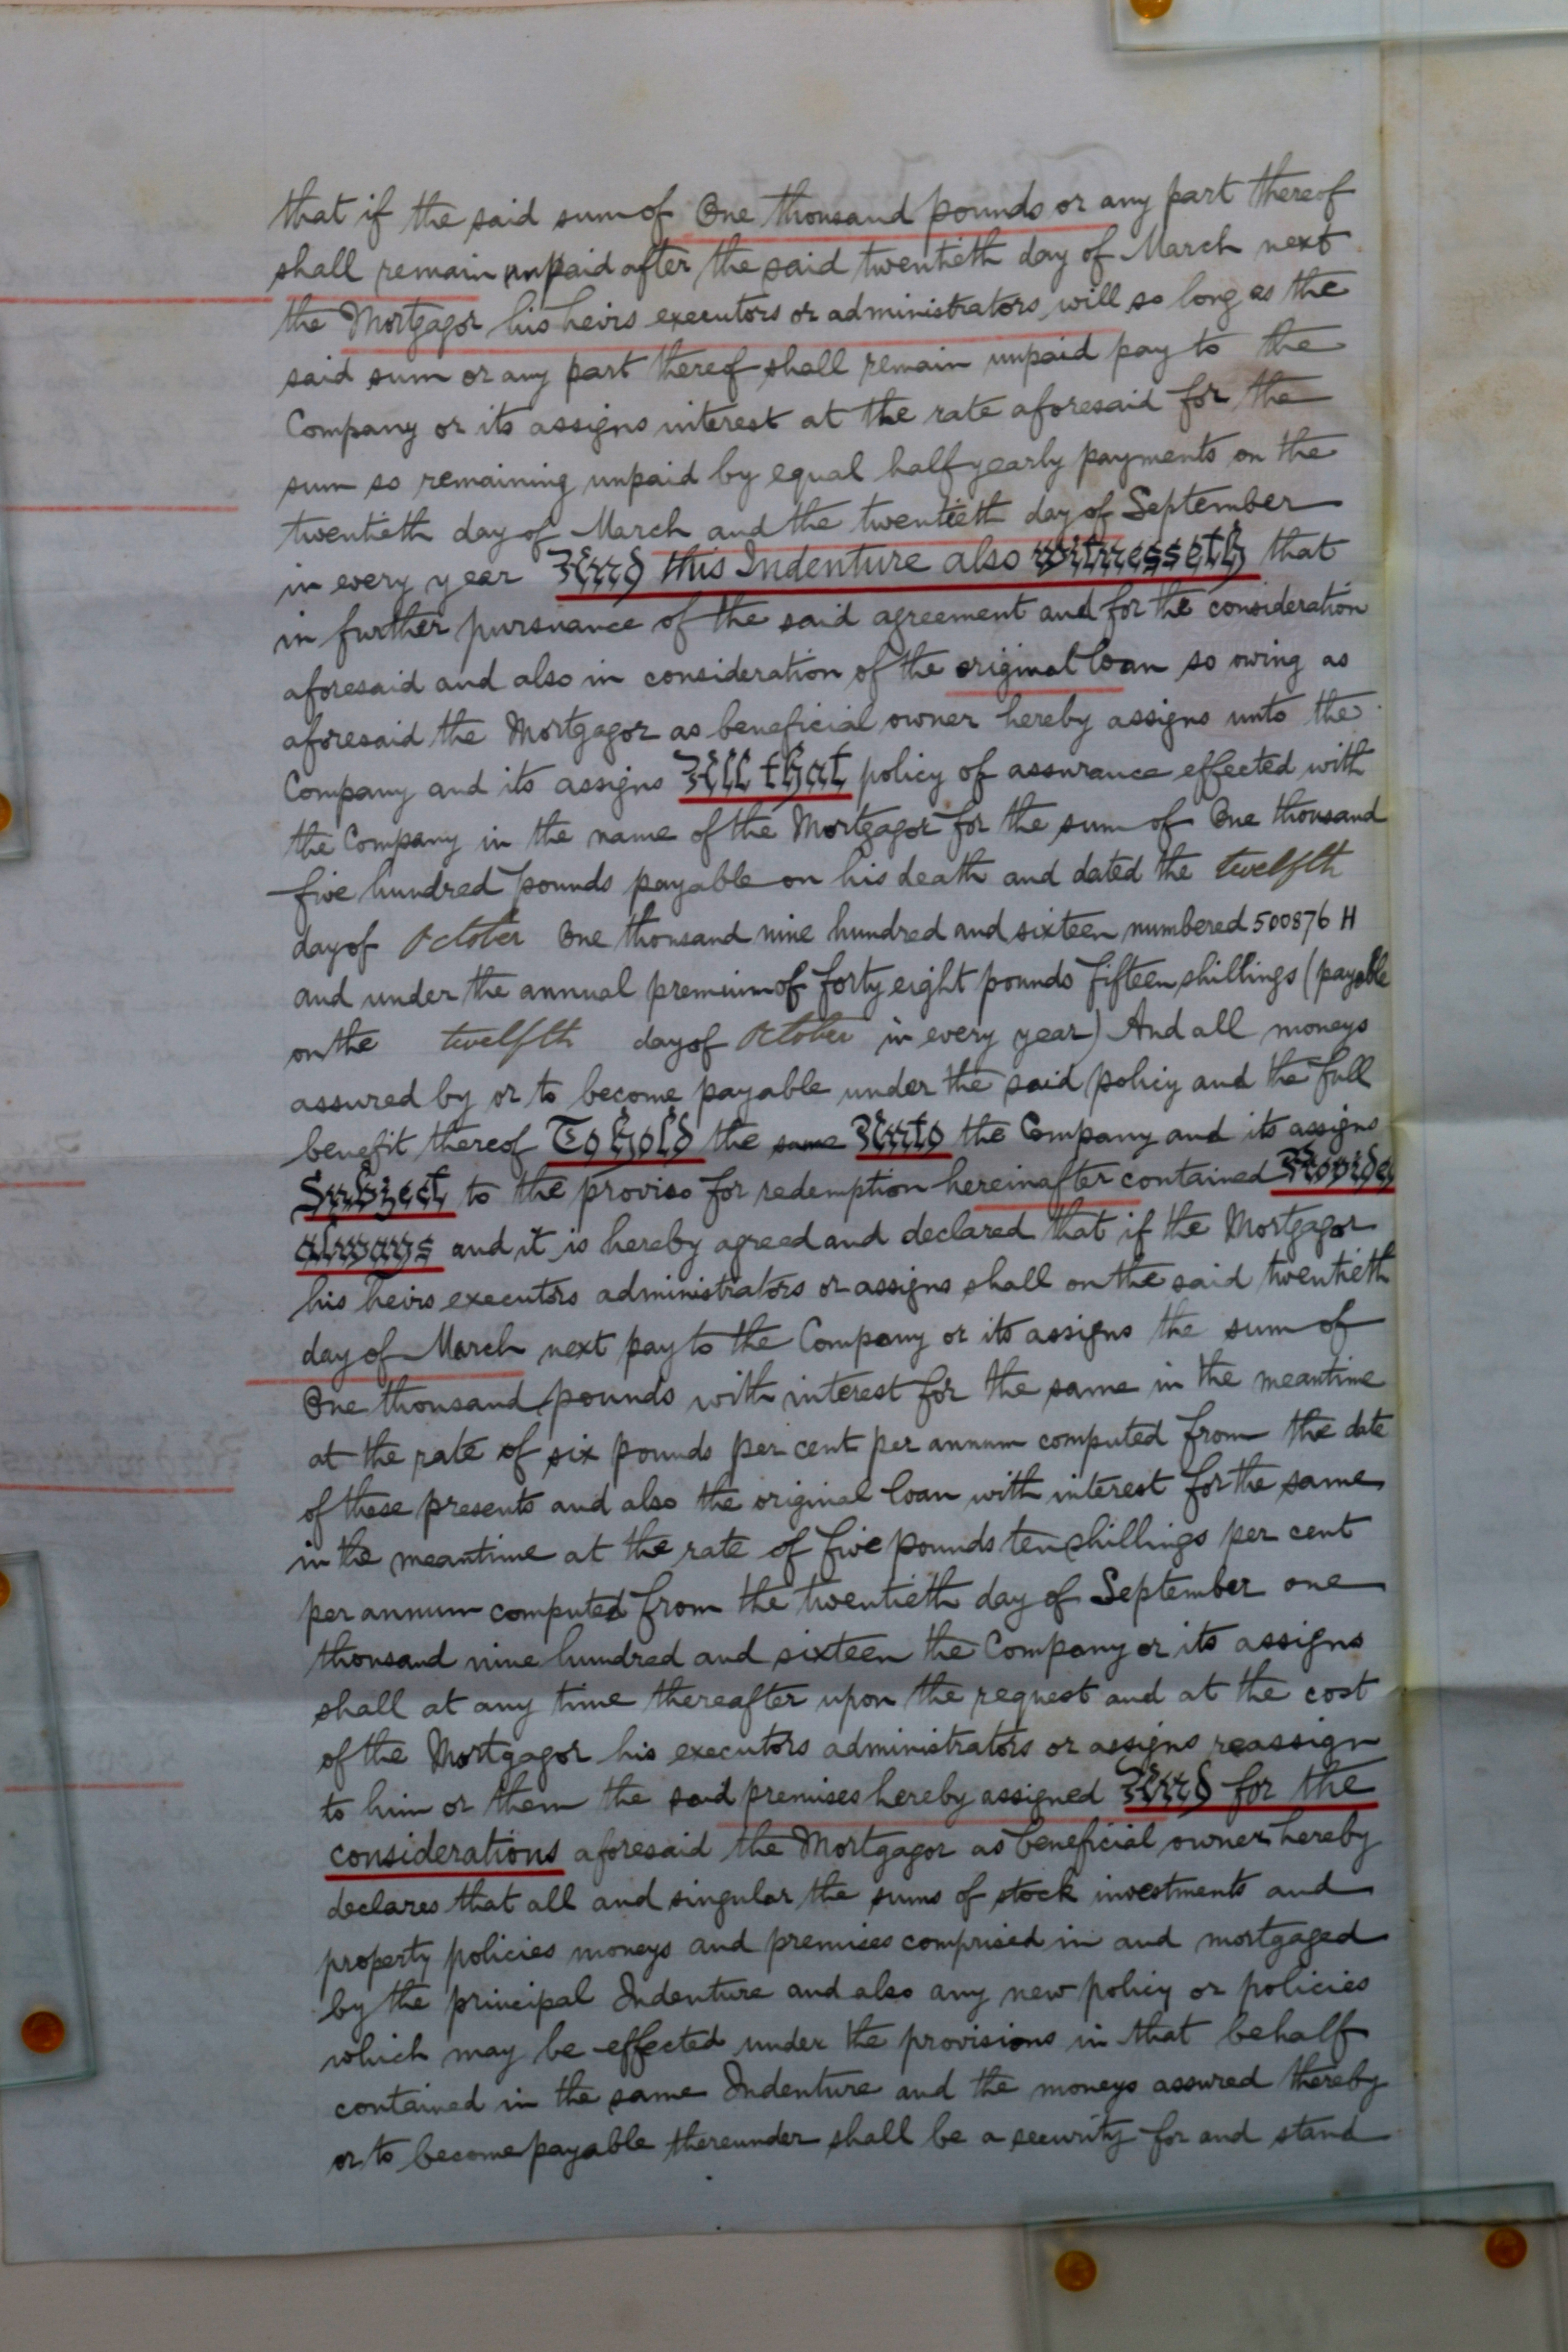 that if the said sum of One thousand pounds or any part thereof
shall remain unpaid after the said twentieth day of March next
the Mortgagor his heirs executors or administrators will so long as the
said sum or any part thereof shall remain unpaid pay to the
Company or its assigns interest at the rate aforesaid for the
sum so remaining unpaid by equal half yearly payments on the
twentieth day of March and the twentieth day of September
in every year And this Indenture also witnesseth that
in further pursuance of the said agreement and for the consideration
aforesaid and also in consideration of the original loan so owing as
aforesaid the Mortgagor as beneficial owner hereby assigns unto the
Company and its assigns All that policy of assurance effected with
the Company in the name of the Mortgagor for the sum of One thousand
five hundred pounds payable on his death and dated the twelfth
day of October One thousand nine hundred and sixteen numbered 500876 H
and under the annual premium of forty eight pounds fifteen shillings (payable
on the twelfth day of October in every year) And all moneys
assured by or to become payable under the said policy and the full
benefit thereof To hold the same Unto the Company and its assigns
Subject to the proviso for redemption hereinafter contained Provided
always and it is hereby agreed and declared that if the Mortgagor
his heirs executors administrators or assigns shall on the said twentieth
day of March next pay to the Company or its assigns the sum of
One thousand pounds with interest for the same in the meantime
at the rate of six pounds per cent per annum computed from the date
of these presents and also the original loan with interest for the same
in the meantime at the rate of five pounds ten shillings per cent
per annum computed from the twentieth day of September one
thousand nine hundred and sixteen the Company or its assigns
shall at any time thereafter upon the request and at the cost
of the Mortgagor his executors administrators or assigns reassign
to him or them the said premises hereby assigned And for the
considerations aforesaid the Mortgagor as beneficial owner hereby
declares that all and singular the sums of stock investments and
property policies moneys and premises comprised in and mortgaged
by the principal Indenture and also any new policy or policies
which may be effected under the provisions in that behalf
contained in the same Indenture and the moneys assured thereby
or to become payable thereunder shall be a security for and stand